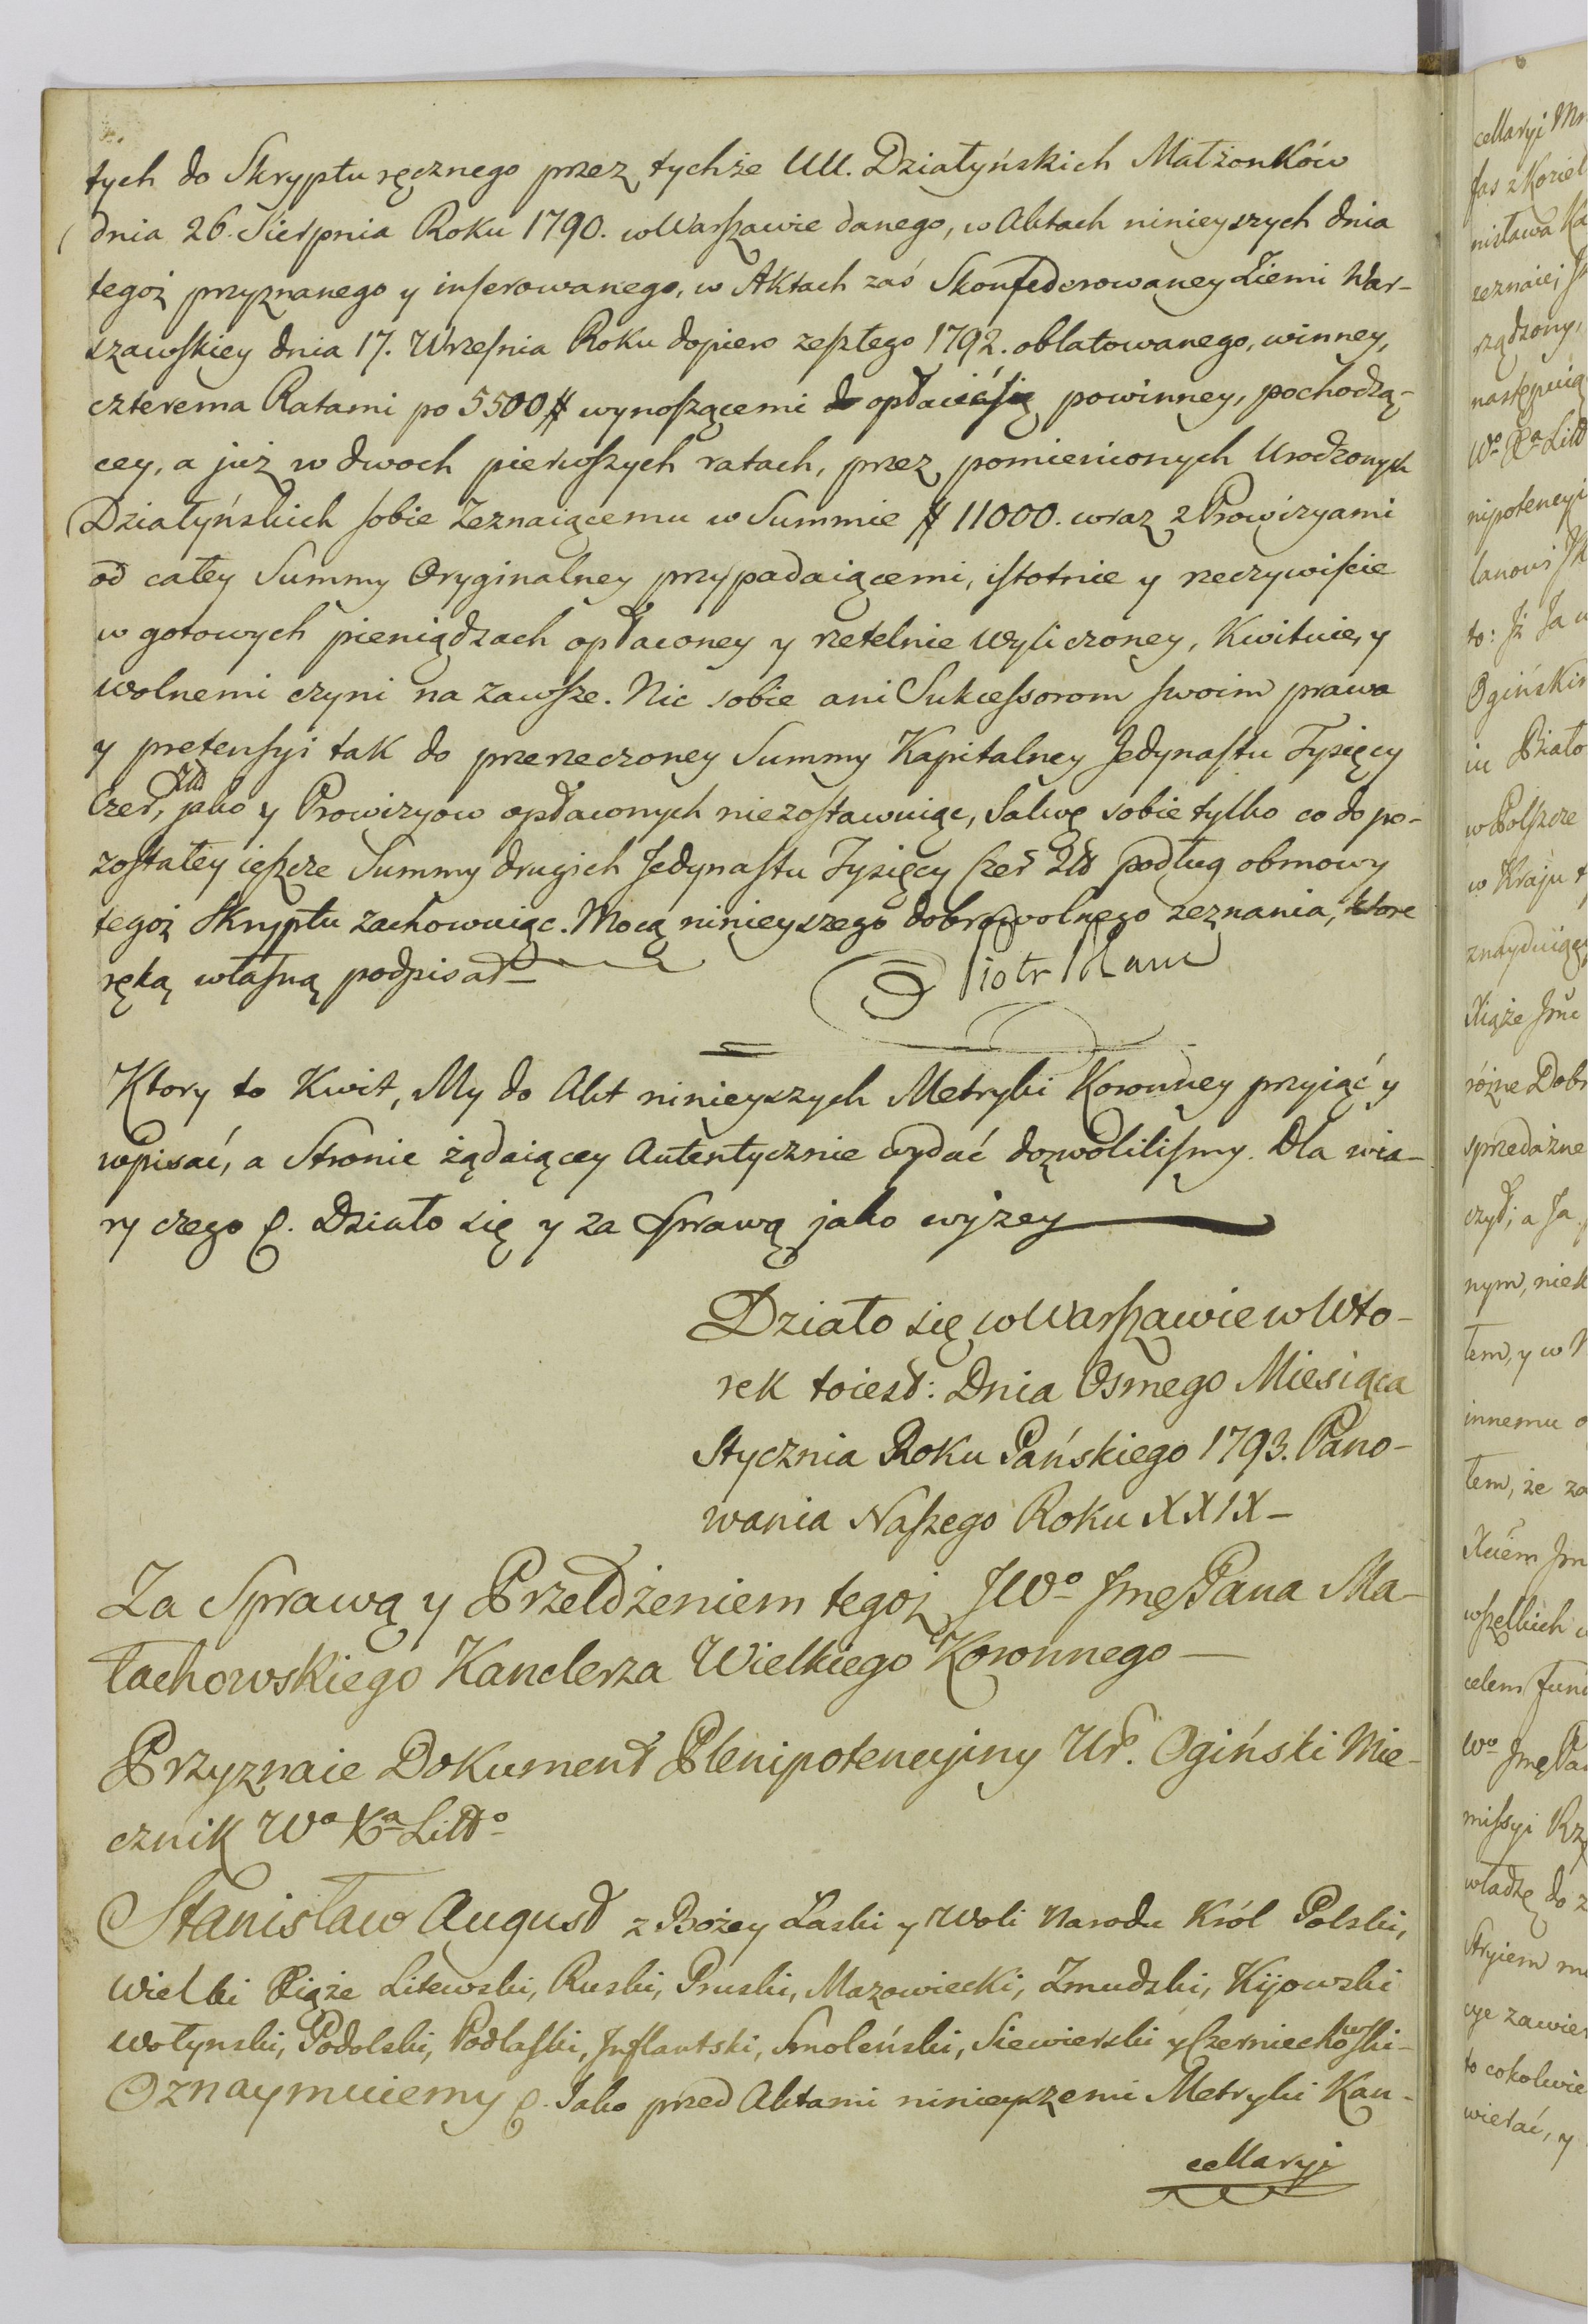 tych do Skryptu ręcznego przez tychże UU. Działyńskich Małżonków
dnia 26. Sierpnia Roku 1790. w Warszawie danego, w Aktach ninieyszych dnia
tegoż przyznanego y inserowanego, w Aktach zaś Skonfederowaney Ziemi War-
szawskiey dnia 17. Września Roku dopiero zeszłego 1792. oblatowanego, winney,
czterema Ratami po 5500 # wynoszącemi opłacić się powinney, pochodzą-
cey, a już w dwoch pierwszych ratach, przez pomienionych Urodzonych
Działyńskich sobie Zeznaiącemu w Summie # 11000. wraz z Prowizyami
od całey Summy Oryginalney przypadaiącemi, istotnie y rzeczywiście
w gotowych pieniądzach opłaconey y rzetelnie wyliczoney, Kwituie, y
wolnemi czyni na zawsze. Nic sobie ani Sukcessorom swoim prawa
y pretensyi tak do przerzeczoney Summy Kapitalney Jedynastu Tysięcy
Czeł, Złł jako y Prowizyow opłaconych niezostawuiąc, Salwę sobie tylko co do po-
zostałey ieszcze Summy drugich Jedynastu Tysięcy Czeł Złł podług obmowy
tegoż Skryptu zachowuiąc. Mocą ninieyszego dobrowolnego zeznania, ktore
ręką własną podpisał –
Piotr Blanc
Ktory to Kwit, My do Akt ninieyszych Metryki Koronney przyiąć y
wpisać, a Stronie żądaiącey Autentycznie wydać dozwoliliśmy. Dla wia-
ry czego &. Działo się y za Sprawą jako wyżey
Działo się w Warszawie w Wto-
rek toiest: Dnia Osmego Miesiąca
Stycznia Roku Pańskiego 1793. Pano-
wania Naszego Roku XXIX –
Za Sprawą y Przełożeniem tegoż JWo Jmę Pana Ma-
łachowskiego Kanclerza Wielkiego Koronnego –
Przyznaie Dokument Plenipotencyiny Ur. Ogiński Mie-
cznik Wo Xa Litto
Stanisław August z Bożey Łaski y Woli Narodu Król Polski,
Wielki Xiąże Litewski, Ruski, Pruski, Mazowiecki, Zmudzki, Kijowski
Wołynski, Podolski, Podlaski, Inflantski, Smoleński, Siewierski y Czerniechowski –
Oznaymuiemy &. Jako przed Aktami ninieyszemi Metryki Kan-
cellaryi
cellaryi
nisława Ka
zeznaie,
rządzony,
następuią
Wo Xa Litt
nipotencyi
to: Iż Ja w
Ogińskim
iu Biało
w Polszcze
w Kraju
znayduiąc
Xiąże Jmć
różne Dobr
sprzedażne
czył; a Ja
nym, niek
łem, y w
innemu o
łem, że za
wszelkich
celem fun
Wo Jmę Pa
missyi Rz
władzę do z
Stryiem
cye zawier
to cokolwie
wierać, y